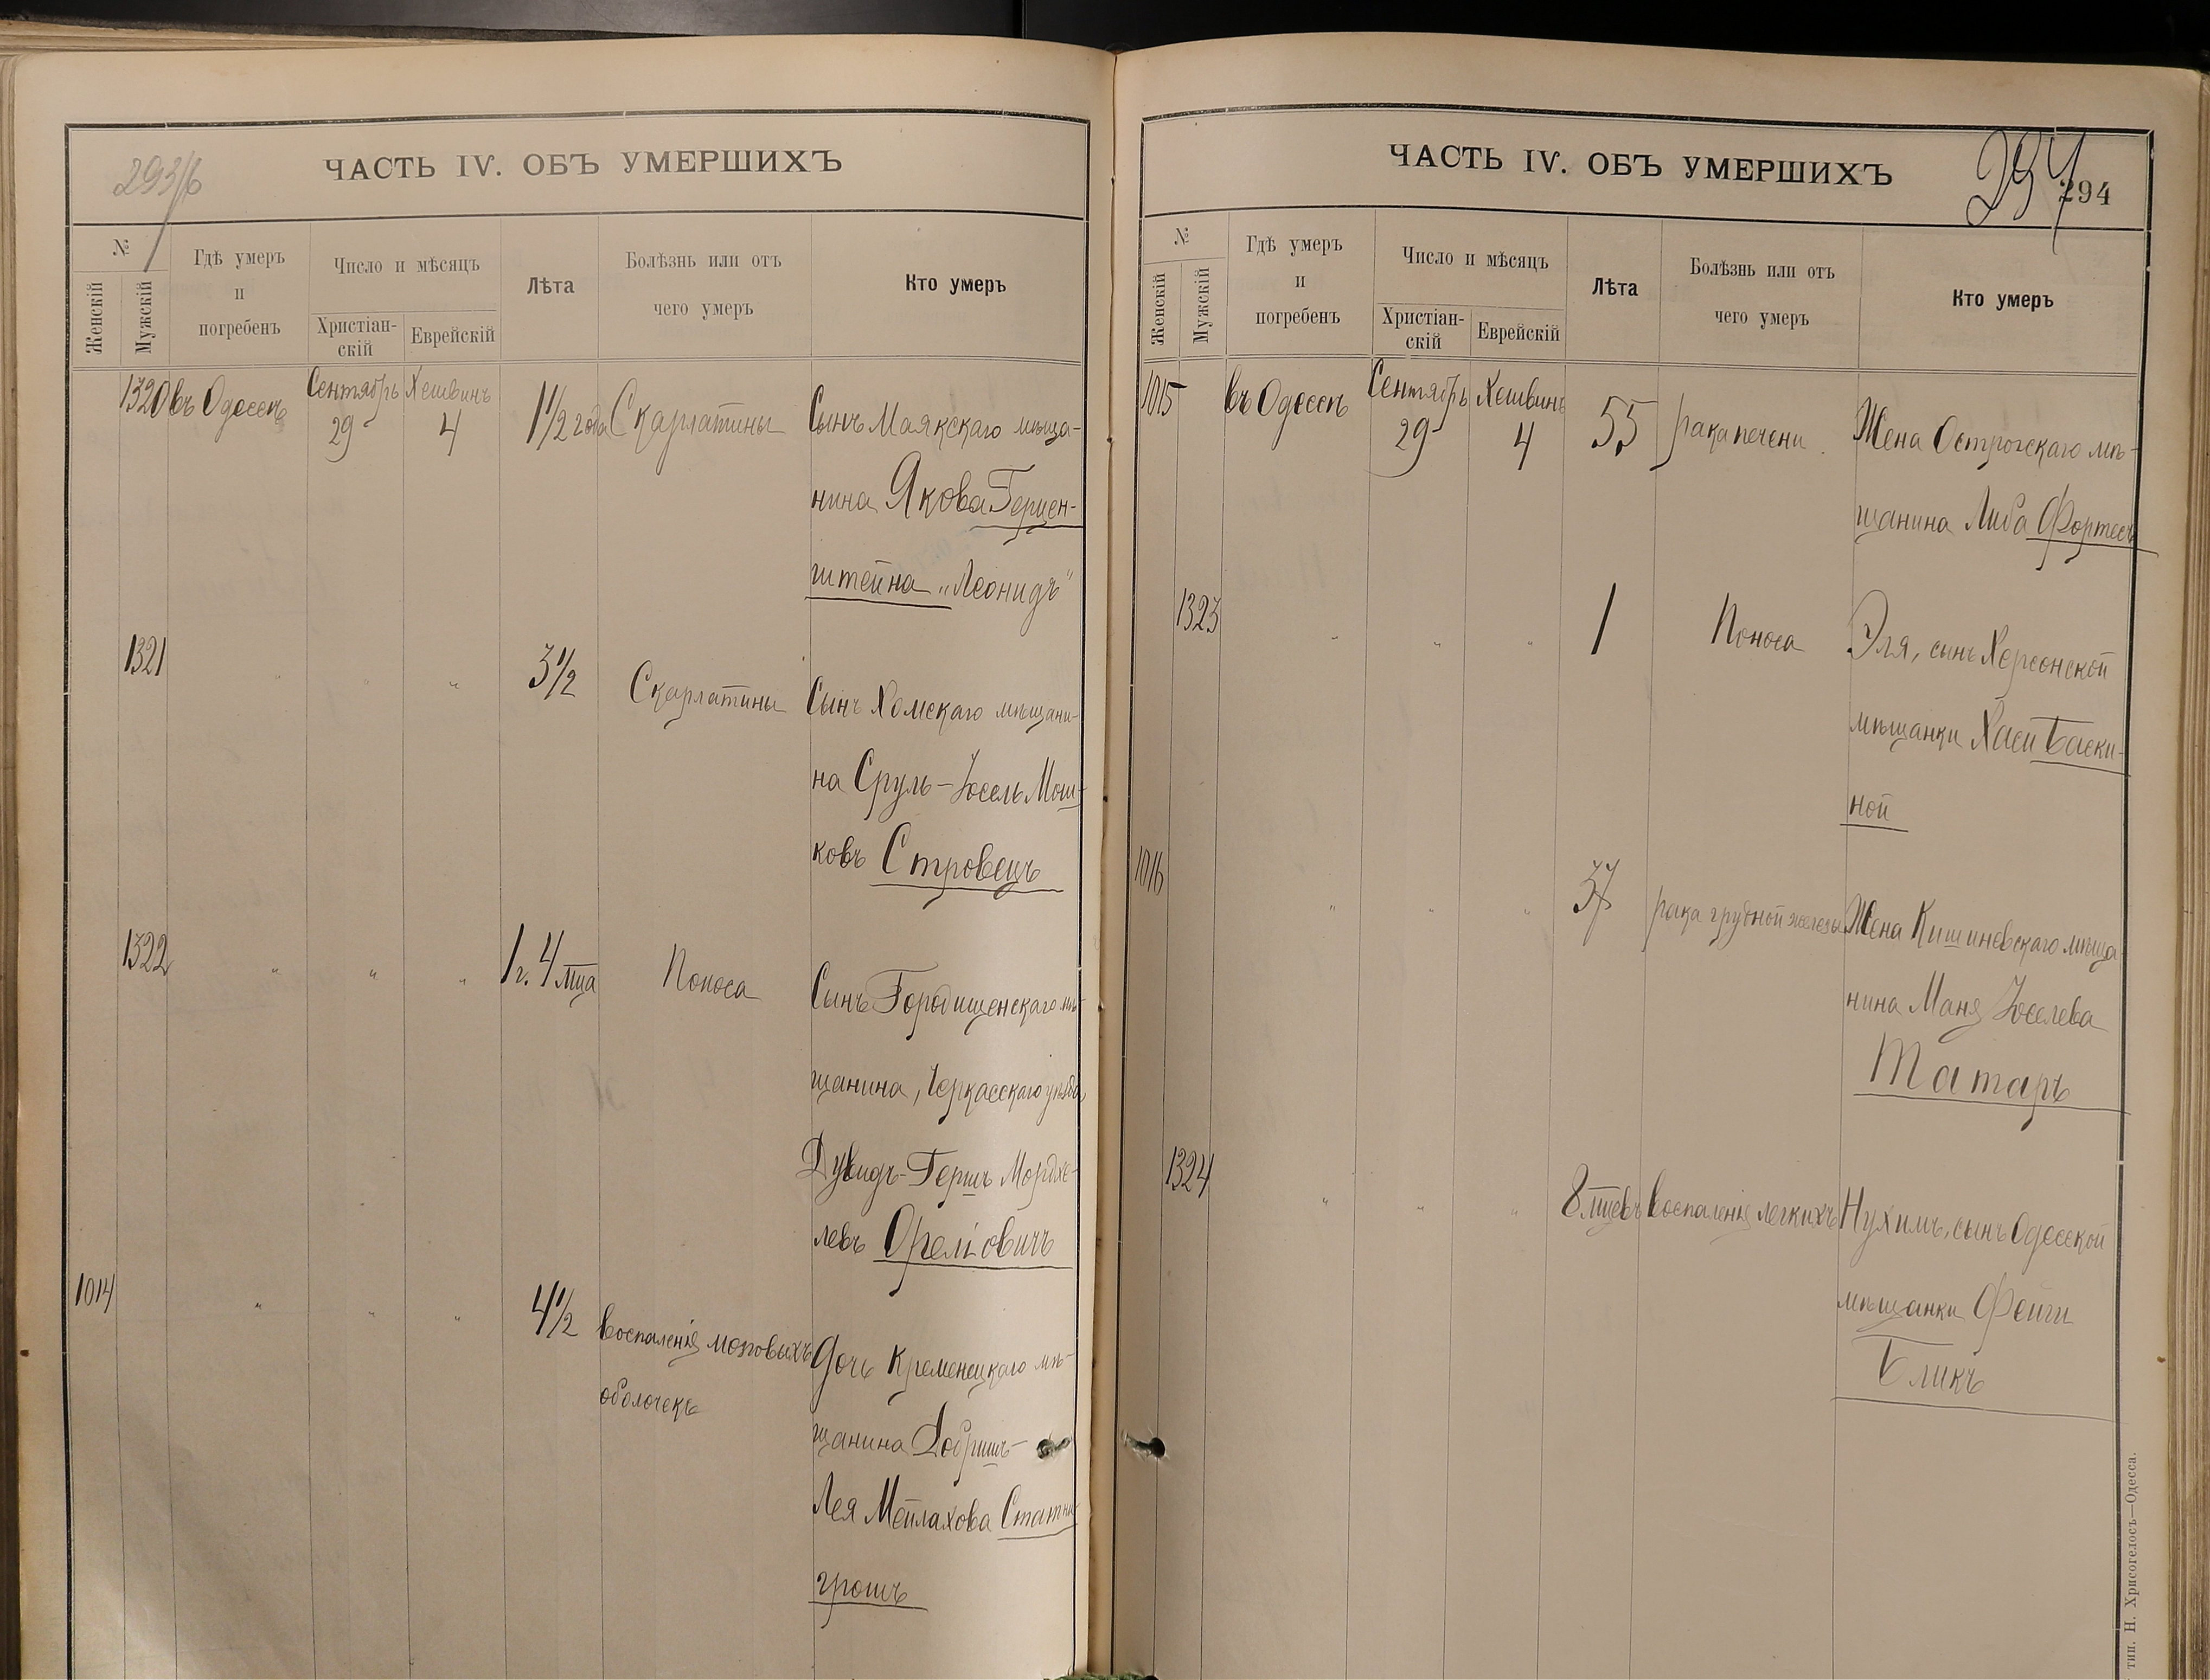 293/б
ЧАСТЬ IV. ОБЪ УМЕРШИХЪ
№
Женскій
Мужскій
Гдѣ умеръ
и
погребенъ
Число и мѣсяцъ
Христіан-
скій
Еврейскій
Лѣта
Болѣзнь или отъ
чего умеръ
Кто умеръ
1320 въ Одессѣ Сентябрь 29 Хешвинъ 4 1½ года Скарлатины Сынъ Маякскаго мѣща-
нина Якова Герцен-
штейна „Леонидъ"
1321 " " " 3½ Скарлатины Сынъ Хомскаго мѣщани-
на Сруль-Іосель Мош-
ковъ Стровецъ
1322 " " " 1 г. 4 мца Поноса Сынъ Городищенскаго мѣ-
щанина, Черкасскаго уѣзда
Дувидъ-Гершъ Мордхе-
левъ
1014 " " " 4½ воспаленія мозговыхъ Дочь Кременецкаго мѣ-
оболочекъ
щанина Добришъ-
Лея Мейлахова
грошъ
ЧАСТЬ IV. ОБЪ УМЕРШИХЪ
294
№
Женскій
Мужскій
Гдѣ умеръ
и
погребенъ
Число и мѣсяцъ
Христіан-
скій
Еврейскій
Лѣта
Болѣзнь или отъ
чего умеръ
Кто умеръ
1015 въ Одессѣ Сентябрь 29 Хешвинъ 4 55 рака печени Жена Острогскаго мѣ-
щанина Либа Фортесъ
1323 " " " 1 Поноса Эля, сынъ Херсонской
мѣщанки Хаси Баски-
ной
1016 " " " 37 рака грудной железы Жена Кишиневскаго мѣща
нина Маня Іоселева
Татаръ
1324 " " " 8 мцевъ воспаленія легкихъ Нухимъ, сынъ Одесской
мѣщанки Фейги
Бликъ
тип. Н. Хрисогелосъ—Одесса.